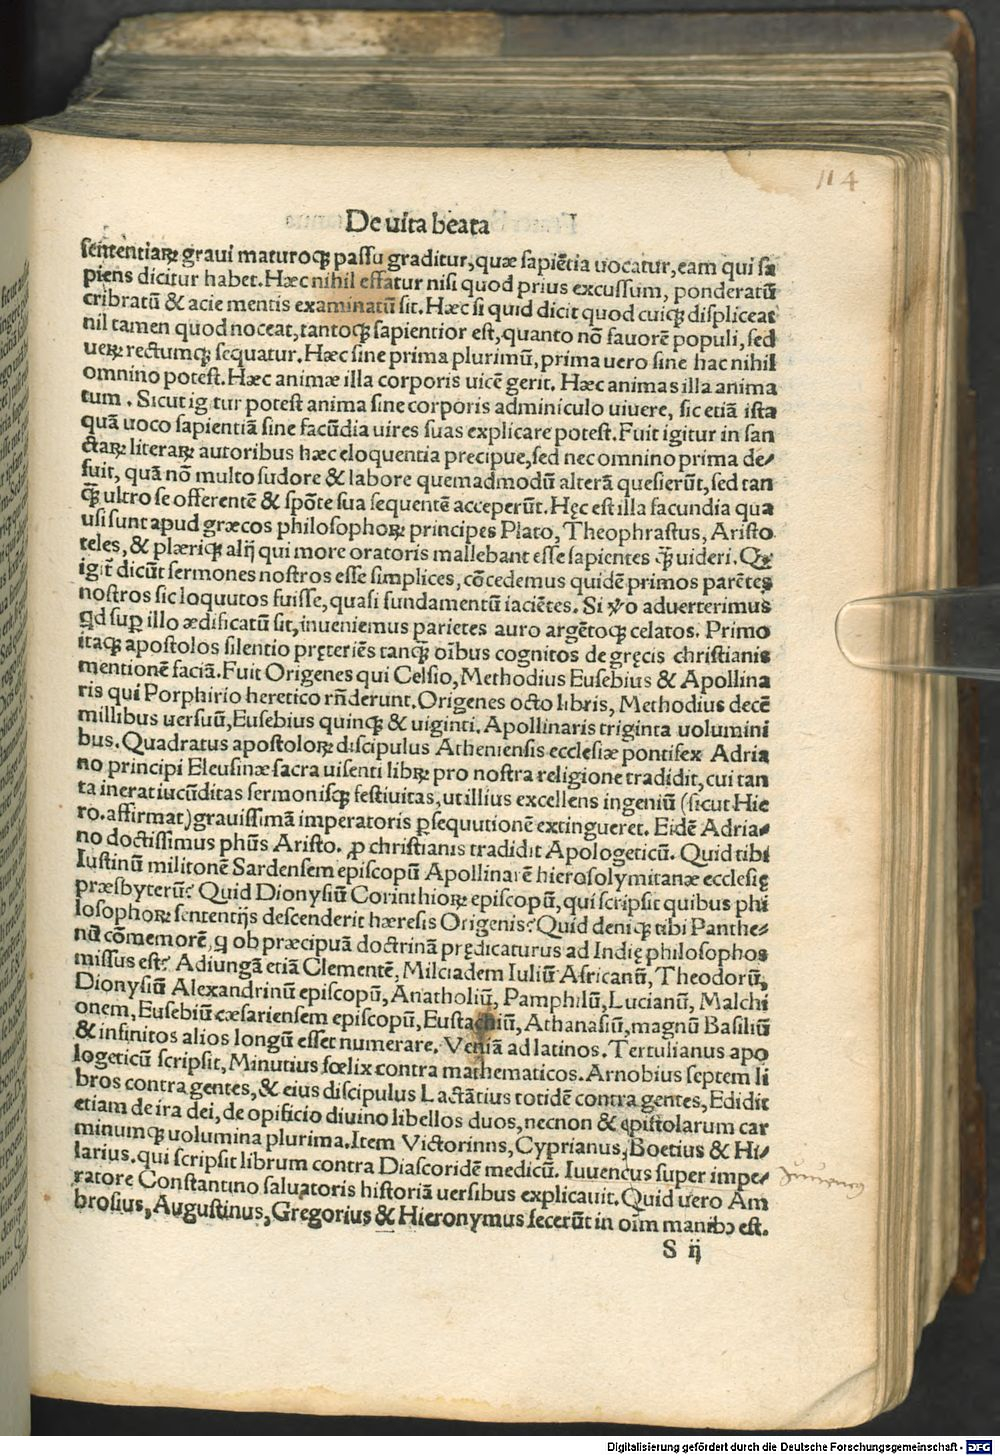 114
De uita beata
sententiaꝝ graui maturoqꝫ passu graditur, quæ sapiẽtia uocatur, eam qui sa
piens dicitur habet. Hæc nihil effatur nisi quod prius excussum, ponderatũ
cribratũ & acie mentis examinatũ sit. Hæc si quid dicit quod cuiqꝫ displiceat
nil tamen quod noceat, tantoqꝫ sapientior est, quanto nõ fauorẽ populi, sed
ueꝝ rectumqꝫ sequatur. Hæc sine prima plurimũ, prima uero sine hac nihil
omnino potest. Hæc animæ illa corporis uicẽ gerit. Hæc animas illa anima
tum. Sicut ig tur potest anima sine corporis adminiculo uiuere, sic etiã ista
quã uoco sapientiã sine facũdia uires suas explicare potest. Fuit igitur in san
ctaꝝ literaꝝ autoribus hæc eloquentia precipue, sed nec omnino prima de⸗
fuit, quã nõ multo sudore & labore quemadmodũ alterã quesierũt, sed tan
qꝫ̃ ultro se offerentẽ & spõte sua sequentẽ acceperũt. Hęc est illa facundia qua
usi sunt apud græcos philosophoꝝ principes Plato, Theophrastus, Aristo
teles, & plæriqꝫ alij qui more oratoris mallebant esse sapientes qꝫ̃ uideri. Qꝛ
igit̃ dicũt sermones nostros esse simplices, cõcedemus quidẽ primos parẽtes
nostros sic loquutos fuisse, quasi fundamentũ iaciẽtes. Si ṽo aduerterimus
qd sup illo ædificatũ sit, inueniemus parietes auro argẽtoqꝫ celatos. Primo
itaqꝫ apostolos silentio pręteriẽs tanqꝫ̃ oĩbus cognitos de gręcis christianis
mentionẽ faciã. Fuit Origenes qui Celsio, Methodius Eusebius & Apollina
ris qui Porphirio heretico rñderunt. Origenes octo libris, Methodius decẽ
millibus uersuũ, Eusebius quinqꝫ & uiginti. Apollinaris triginta uolumini
bus. Quadratus apostoloꝝ discipulus Atheniensis ecclesiæ pontifex Adria
no principi Eleusinæ sacra uisenti libꝝ pro nostra religione tradidit, cui tan
ta inerat iucũditas sermonisqꝫ festiuitas, ut illius excellens ingeniũ (sicut Hie
ro. affirmat) grauissimã imperatoris ꝑsequutionẽ extingueret. Eidẽ Adria⸗
no doctissimus phũs Aristo. ꝓ christianis tradidit Apologeticũ. Quid tibi
Iustinũ militonẽ Sardensem episcopũ Apollinarẽ hierosolymitanæ ecclesię
præsbyterũ? Quid Dionysiũ Corinthioꝝ episcopũ, qui scripsit quibus phi
losophoꝝ sententijs descenderit hæresis Origenis? Quid deniqꝫ tibi Panthe⸗
nũ cõmemorẽ, q ob præcipuã doctrinã prędicaturus ad Indię philosophos
missus est? Adiungã etiã Clementẽ, Milciadem Iuliũ Africanũ, Theodorũ,
Dionysiũ Alexandrinũ episcopũ, Anatholiũ, Pamphilũ, Lucianũ, Malchi
onem, Eusebiũ cæsariensem episcopũ, Eustachiũ, Athanasiũ, magnũ Basiliũ
& infinitos alios longũ esset numerare. Veniã ad latinos. Tertulianus apo
logeticũ scripsit, Minutius fœlix contra mathematicos. Arnobius septem li
bros contra gentes, & eius discipulus Lactãtius totidẽ contra gentes, Edidit
etiam de ira dei, de opificio diuino libellos duos, necnon & epistolarum car
minumqꝫ uolumina plurima. Item Victorinns, Cyprianus, Boetius & Hi⸗
larius. qui scripsit librum contra Diascoridẽ medicũ. Iuuencus super impe⸗
ratore Constantino saluatoris historiã uersibus explicauit. Quid uero Am
brosius, Augustinus, Gregorius & Hieronymus fecerũt in oĩm manibꝯ est.
Juuencus
S ij
Digitalisierung gefördert durch die Deutsche Forschungsgemeinschaft - DFG